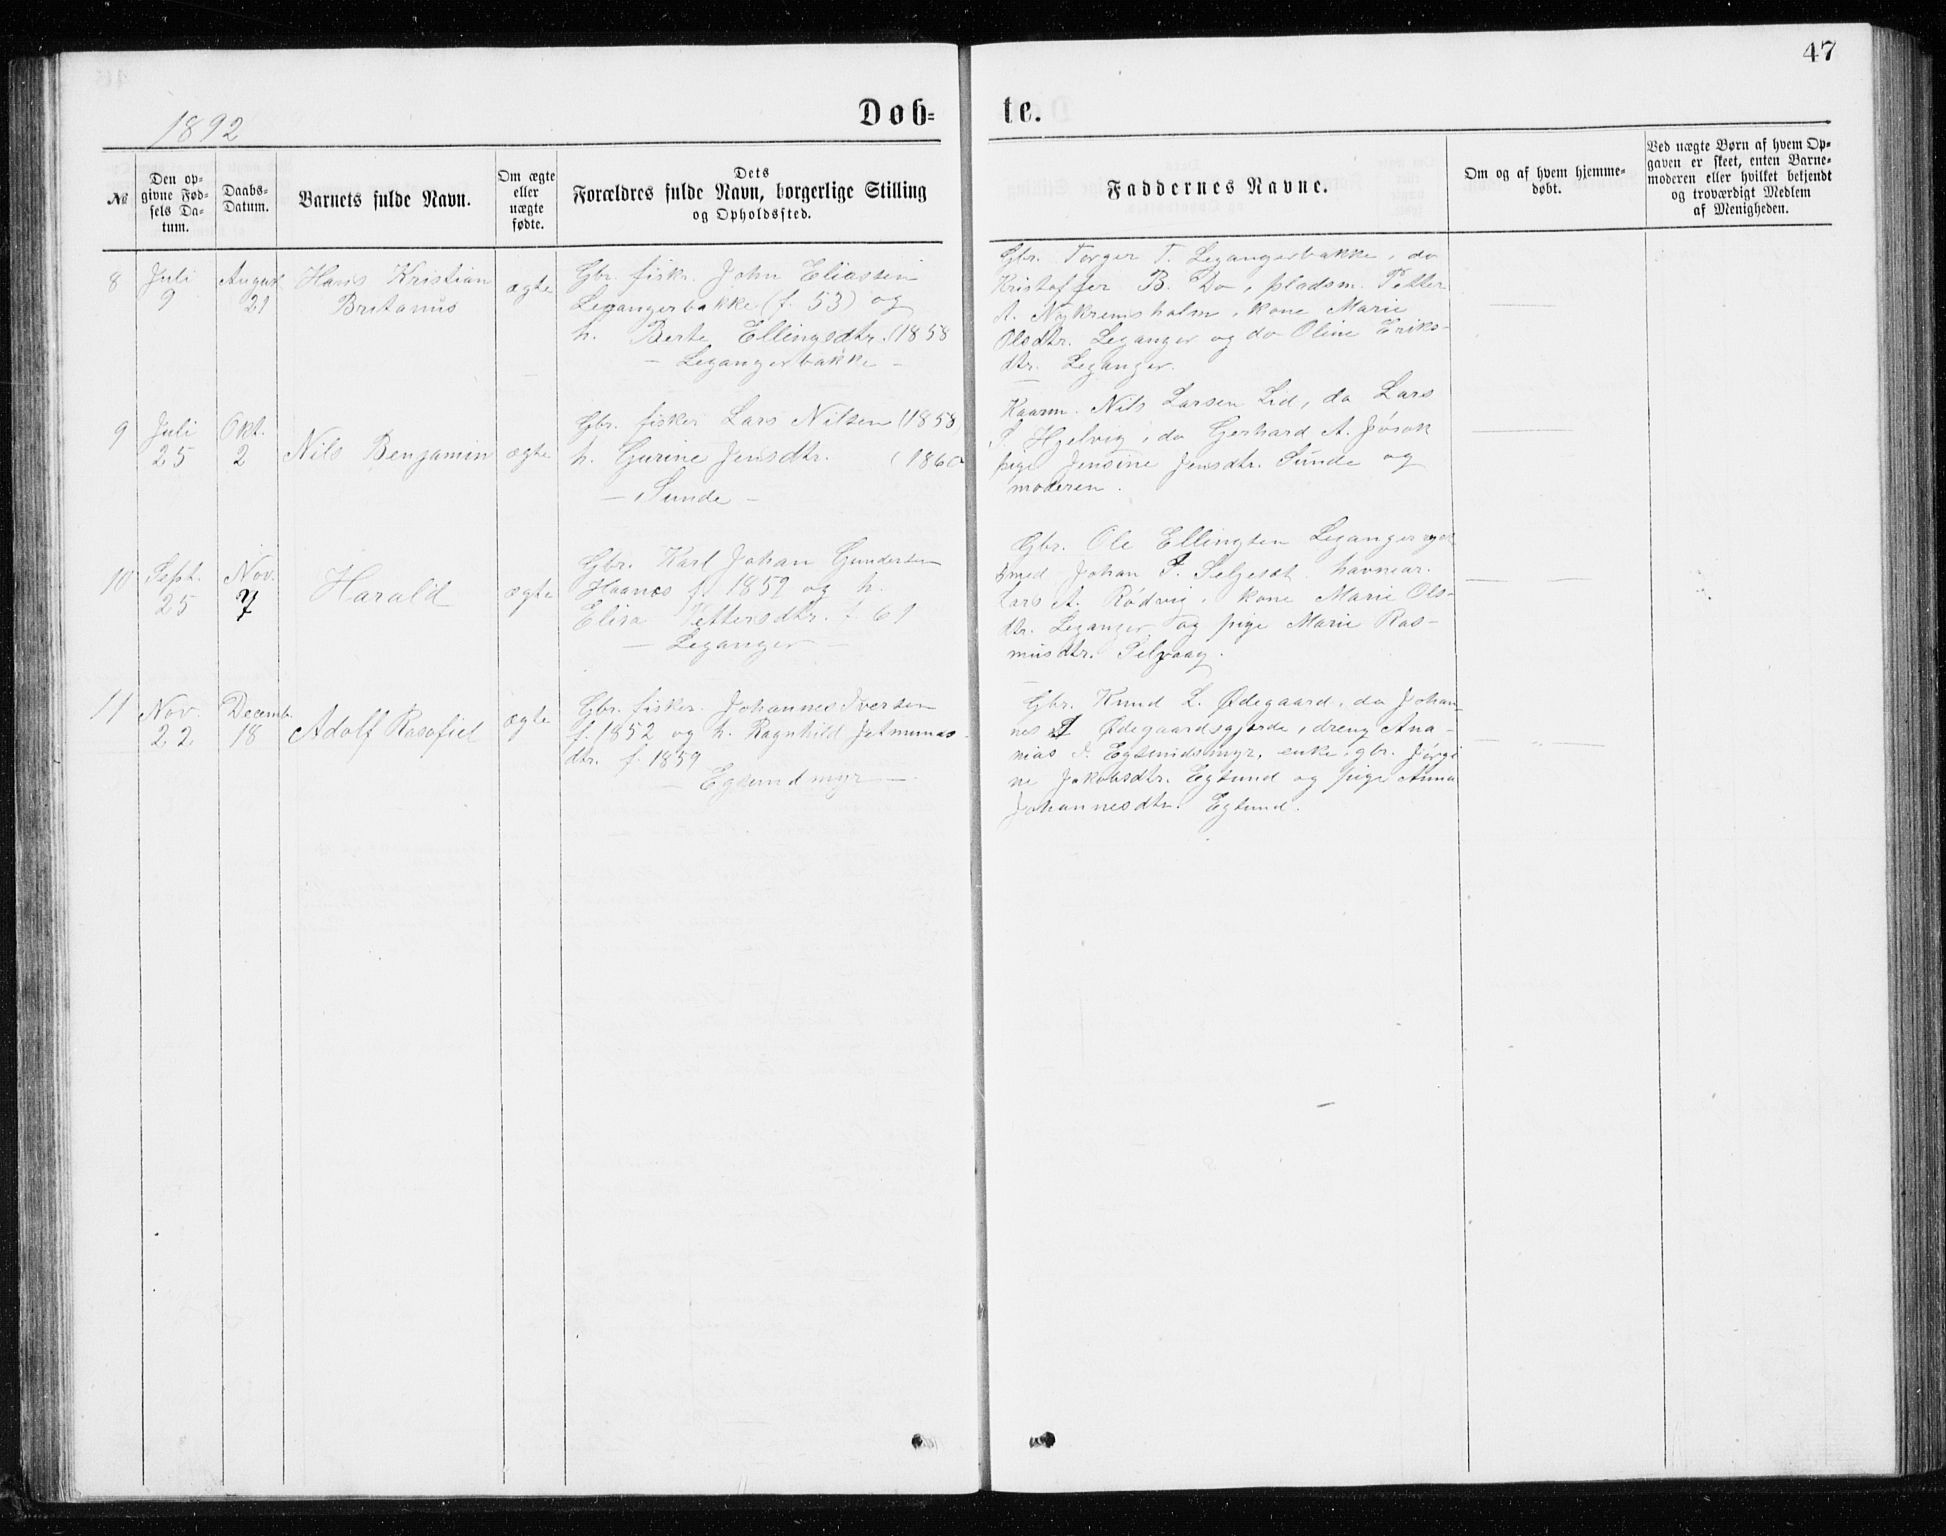 47
1892
Døb=
te.
№
Den op-
givne Fød-
sels Da-
tum.
Daabs-
Datum.
Barnets fulde Navn.
Om ægte
eller
uægte
fødte.
Dets
Forældres fulde Navn, borgerlige Stilling
og Opholdssted.
Faddernes Navne.
Om og af hvem hjemme-
døbt.
Ved uægte Børn af hvem Op-
gaven er skeet, enten Barne-
moderen eller hvilket bekjendt
og troværdigt Medlem
af Menigheden.
8
Juli
9
August
21
Hans Kristian
Britanus
ægte
Gbr. fiskr. John Eliassen
Legangerbakke (f. 53) og
h. Berte Ellingsdtr. (1858
- Legangerbakke -
Gbr. Torger T. Legangerbakke, do
Kristoffer B. Do, pladsm. Petter
A. Nykremsholm, kone Marie
Olsdtr. Leganger og do Oline Eriks-
dtr. Leganger.
9
Juli
25
Okt.
2
Nils Benjamin
ægte
Gbr. fisker Lars Nilsen (1858)
h. Gurine Jensdtr. (1860
- Sunde -
Kaarm. Nils Larsen Lid, do Lars
Hjelvig, do Gerhard A.
pige Jensine Jensdtr. Sunde og
moderen.
10
Sept.
25
Nov.
7
Harald
ægte
Gbr. Karl Johan Gundersen
Haanes f. 1852 og h.
Elisa Pettersdtr. f. 61
- Leganger -
Gbr. Ole Ellingsen Leganger
smed Johan
Lars A. Rødvig, kone Marie Ols-
dtr. Leganger og pige Marie Ras-
musdtr. Selvaag.
11
Nov.
22
Decemb.
18
Adolf Rasofiel
ægte
Gbr. fisker Johannes Iversen
f. 1852 og h. Ragnhild Jetmunds-
dtr. f. 1859
- Egsundmyr -
Gbr. Knud L. Ødegaard, do Johan-
nes Ødegaardsgjerde, dreng Ana-
nias J. Egsundsmyr, enke, gbr. Jørgi
ne Jakobsdtr. Egsund og pige Anna
Johannesdtr. Egsund.